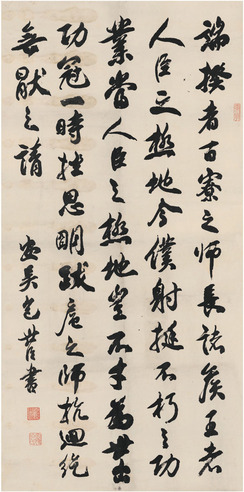 端揆者百寮之師長諸侯王者
人臣之極地今僕射挺不朽之功
業當人臣之極地豈不才為世出
功冠一時挫思明跋扈之師抗迴紇
無猒之請
安吳包世臣書